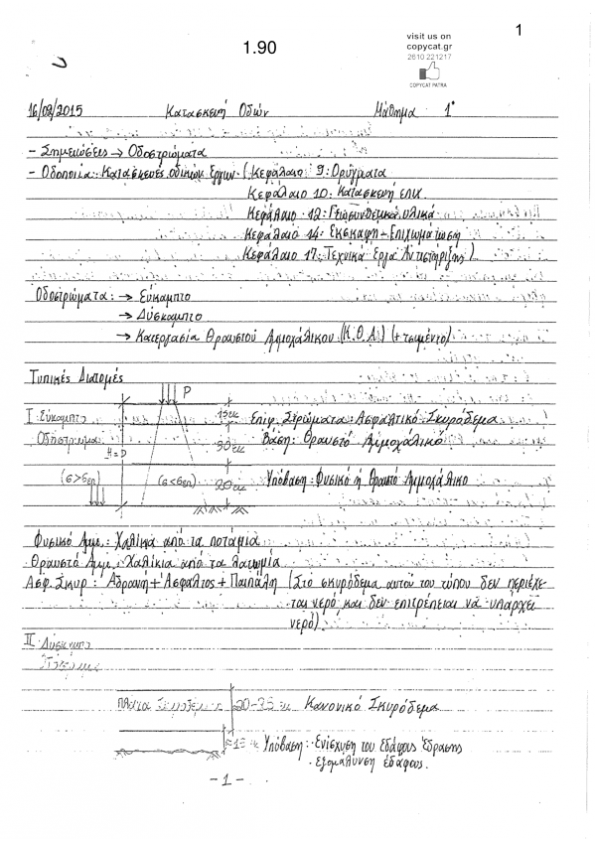 1
visit us on
copycat.gr
2610 221217
COPYCAT PATRA
1.90
16/02/2015 Κατασκευή Οδών Μάθημα 1°
- Σημειώσεις → Οδοστρώματα
- Οδοποιία: Κατασκευές οδικών έργων (Κεφάλαιο 9: Ορύγματα
Κεφάλαιο 10: Κατασκευή επιχ.
Κεφάλαιο 12: Γεωσυνθετικά υλικά
Κεφάλαιο 14: Εκσκαφή - Επιχωμάτωση
Κεφάλαιο 17: Τεχνικά Έργα Αντιστήριξης)
Οδοστρώματα: → Εύκαμπτο
→ Δύσκαμπτο
→ Κατεργασία Θραυστού Αμμοχάλικου (Κ.Θ.Α.) (+ τσιμέντο)
Τυπικές Διατομές
P
I Εύκαμπτο 15εκ Επιφ. Στρώματα: Ασφαλτικό Σκυρόδεμα
Οδόστρωμα 30εκ Βάση: Θραυστό Αμμοχαλικό
H=D
(σ>σεπ) (σ<σεπ) 20εκ Υπόβαση: Φυσικό ή Θραυστό Αμμοχάλικο
Φυσικό Αμμ.: Χαλίκια από τα ποτάμια
Θραυστό Αμμ.: Χαλίκια από τα λατωμία
Ασφ. Σκυρ: Αδρανή + Άσφαλτος + Παιπάλη (Στο σκυρόδεμα αυτού του τύπου δεν περιέχε-
ται νερό και δεν επιτρέπεται να υπάρχει
νερό)
II Δύσκαμπτο
Πλάκα Σκυροδέματος 20-35 εκ Κανονικό Σκυρόδεμα
≈15 εκ Υπόβαση: · Ενίσχυση του εδάφους έδρασης
· Εξομάλυνση εδάφους.
- 1 -